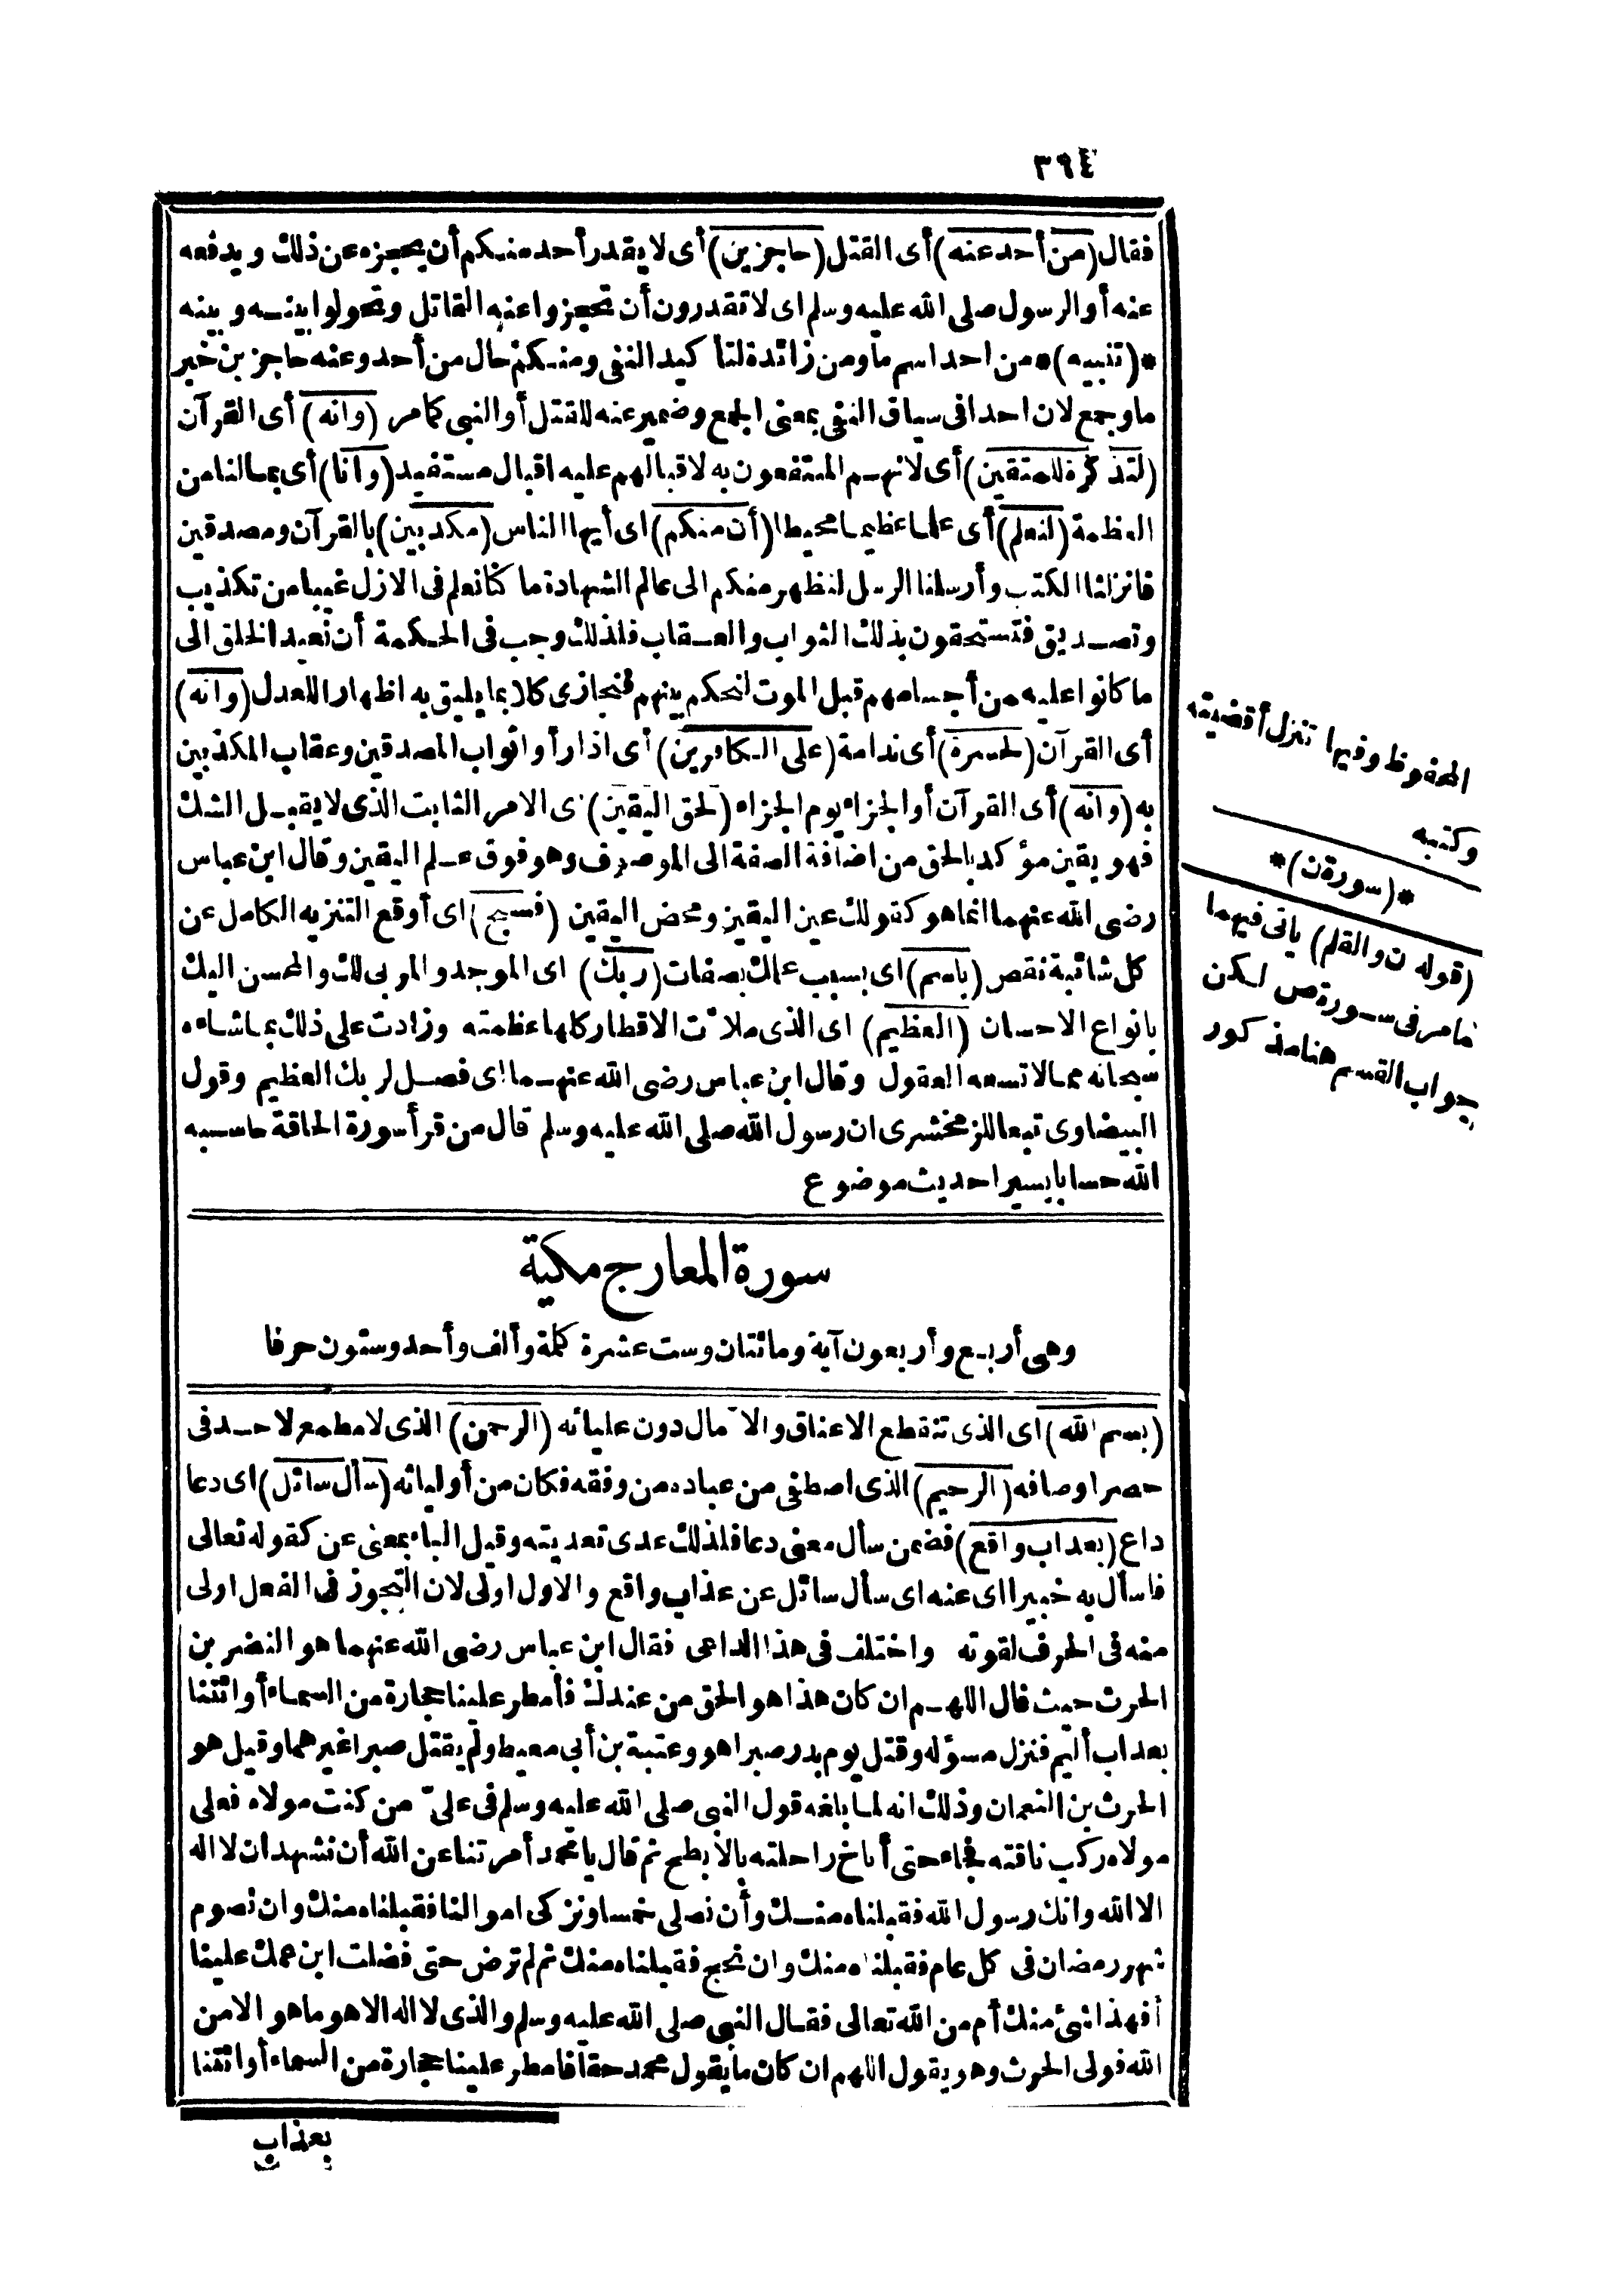 ٣٩٤
فقال (من أحد عنه) أى القتل (حاجزين) أى لا يقدر أحد منكم أن يحجزه عن ذلك ويدفعه
عنه أو الرسول صلى الله عليه وسلم اى لا تقدرون أن تحجزوا عنه القاتل وتحولوا بينه وبينه
*(تنبيه)* من احد اسم ما ومن زائدة لتأكيد النفى ومنكم حال من أحد وعنه حاجزين خبر
ما وجمع لان احدا فى سياق النفى بمعنى الجمع وضمير عنه للقتل أو النبى كما مر (وانه) أى القرآن
(لتذكرة للمتقين) أى لانهم المنتفعون به لاقبالهم عليه اقبال مستفيد (وانا) أى بمالنا من
العظمة (لنعلم) أى علما عظيما محيطا (أن منكم) اى أيها الناس (مكذبين) بالقرآن ومصدقين
فانزلنا الكتب وأرسلنا الرسل لنظهر منكم الى عالم الشهادة ما كنا نعلم فى الازل غيبا من تكذيب
وتصديق فتستحقون بذلك الثواب والعقاب فلذلك وجب فى الحكمة أن نعيد الخلق الى
ما كانوا عليه من أجسامهم قبل الموت لنحكم بينهم فنجازى كلا بما يليق به اظهارا للعدل (وانه)
أى القرآن (لحسرة) أى ندامة (على الكافرين) أى اذا رأوا ثواب المصدقين وعقاب المكذبين
به (وانه) أى القرآن أو الجزاء يوم الجزاء (لحق اليقين) أى الامر الثابت الذى لا يقبل الشك
فهو يقين مؤكد بالحق من اضافة الصفة الى الموصوف وهو فوق علم اليقين وقال ابن عباس
رضى الله عنهما انما هو كقولك عين اليقين ومحض اليقين (فسبح) اى أوقع التنزيه الكامل عن
كل شائبة نقص (باسم) اى بسبب علمك بصفات (ربك) اى الموجد والمربى لك والمحسن اليك
بانواع الاحسان (العظيم) اى الذى ملأت الاقطار كلها عظمته وزادت على ذلك بما شاءه
سبحانه مما لا تسعه العقول وقال ابن عباس رضى الله عنهما اى فصل لربك العظيم وقول
البيضاوى تبعا للزمخشرى ان رسول الله صلى الله عليه وسلم قال من قرأ سورة الحاقة حاسبه
الله حسابا يسيرا حديث موضوع
سورة المعارج مكية
وهى أربع وأربعون آية ومائتان وست عشرة كلمة وألف وأحد وستون حرفا
(بسم الله) اى الذى تنقطع الاعناق والآمال دون عليائه (الرحمن) الذى لا مطمع لاحد فى
حصر اوصافه (الرحيم) الذى اصطفى من عباده من وفقه فكان من أوليائه (سأل سائل) اى دعا
داع (بعذاب واقع) فضمن سأل معنى دعا فلذلك عدى تعديته وقيل الباء بمعنى عن كقوله تعالى
فاسأل به خبيرا اى عنه اى سأل سائل عن عذاب واقع والاول اولى لان التجوز فى الفعل اولى
منه فى الحرف لقوته واختلف فى هذا الداعى فقال ابن عباس رضى الله عنهما هو النضر بن
الحرث حيث قال اللهم ان كان هذا هو الحق من عندك فأمطر علينا حجارة من السماء أو ائتنا
بعذاب أليم فنزل مسؤله وقتل يوم بدر صبرا هو وعتبة بن أبى معيط ولم يقتل صبرا غيرهما وقيل هو
الحرث بن النعمان وذلك انه لما بلغه قول النبى صلى الله عليه وسلم فى علىّ من كنت مولاه فعلى
مولاه ركب ناقته فجاء حتى أناخ راحلته بالأبطح ثم قال يا محمد أمرتنا عن الله أن نشهد ان لا اله
الا الله وانك رسول الله فقبلناه منك وأن نصلى خمسا ونزكى اموالنا فقبلناه منك وان نصوم
شهر رمضان فى كل عام فقبلناه منك وان نحج فقبلناه منك ثم لم ترض حتى فضلت ابن عمك علينا
أفهذا شئ منك أم من الله تعالى فقال النبى صلى الله عليه وسلم والذى لا اله الا هو ما هو الا من
الله فولى الحرث وهو يقول اللهم ان كان ما يقول محمد حقا فامطر علينا حجارة من السماء أو ائتنا
بعذاب
المحفوظ وفيها تنزل أقضيته
وكتبه
*(سورة ن)*
(قوله ن والقلم) ياتى فيهما
ما مر فى سورة ص لكن
جواب القسم هنا مذكور